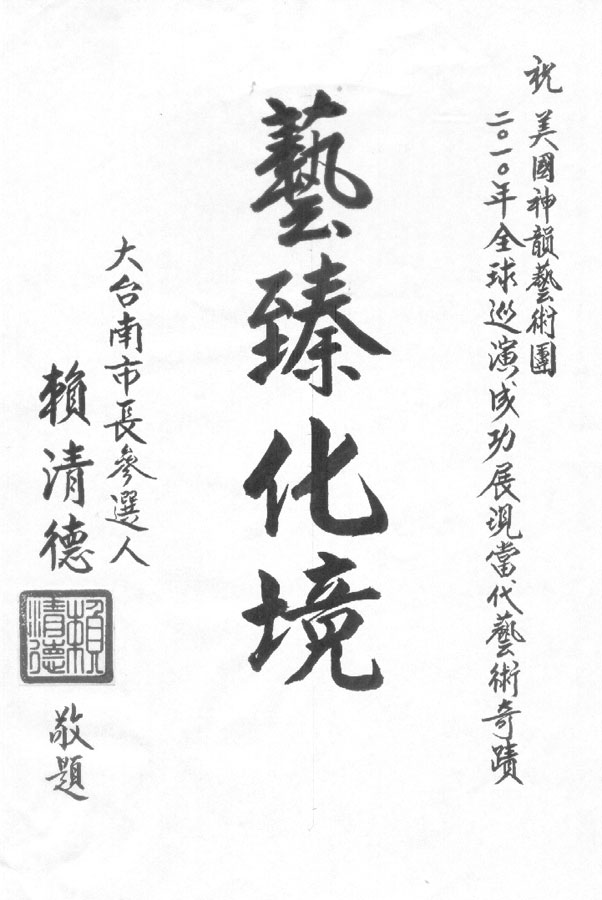 祝
美國神韻藝術團
二〇一〇年全球巡演成功展現當代藝術奇蹟
藝臻化境
大台南市長參選人
賴清德
賴清德
敬題